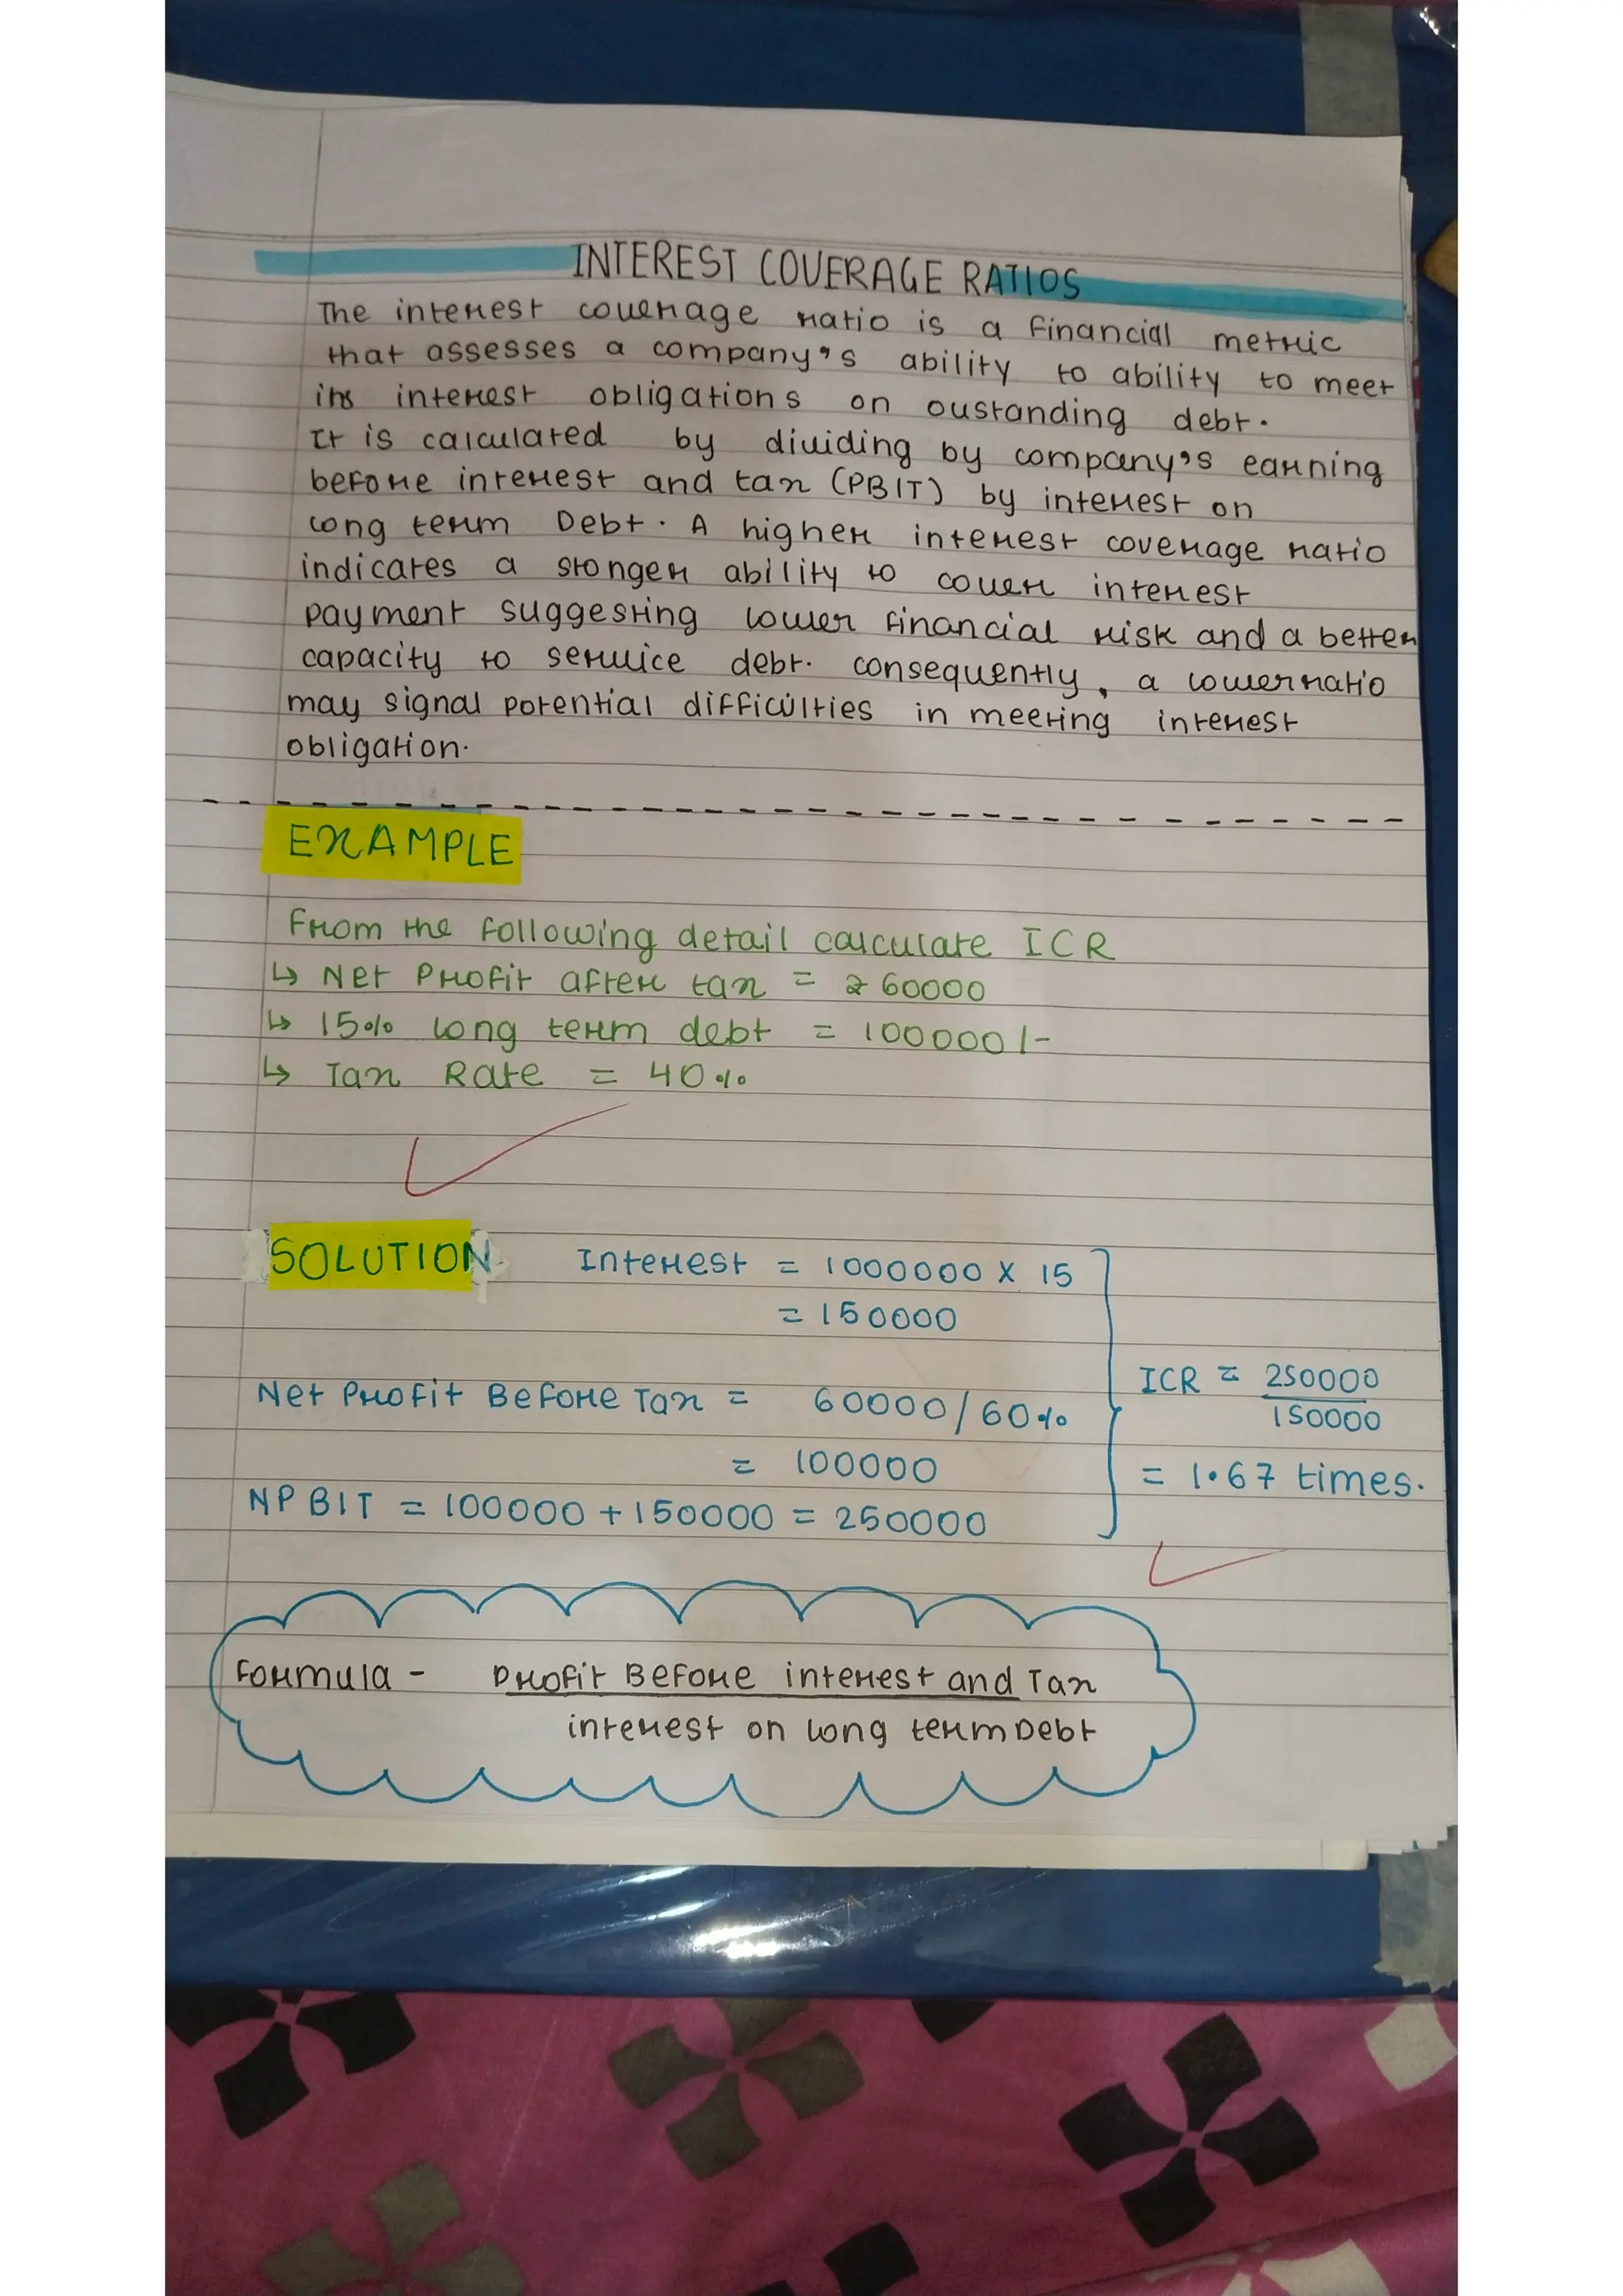 INTEREST COVERAGE RATIOS
The interest coverage ratio is a financial metric
that assesses a company's ability to ability to meet
its interest obligations on oustanding debt.
It is calculated by dividing by company's earning
before interest and tax (PBIT) by interest on
long term Debt. A higher interest coverage ratio
indicates a stonger ability to cover interest
payment suggesting lower financial risk and a better
capacity to service debt. consequently, a lower ratio
may signal potential difficulties in meeting interest
obligation.
EXAMPLE
From the following detail calculate ICR
↳ Net Profit after tax = ₹ 60000
↳ 15% long term debt = 100000/-
↳ Tax Rate = 40%
SOLUTION Interest = 1000000 X 15
= 150000
Net Profit Before Tax = 60000/60%
= 100000
NPBIT = 100000 + 150000 = 250000
ICR = 250000
150000
= 1.67 times.
Formula - Profit Before interest and Tax
interest on long term Debt